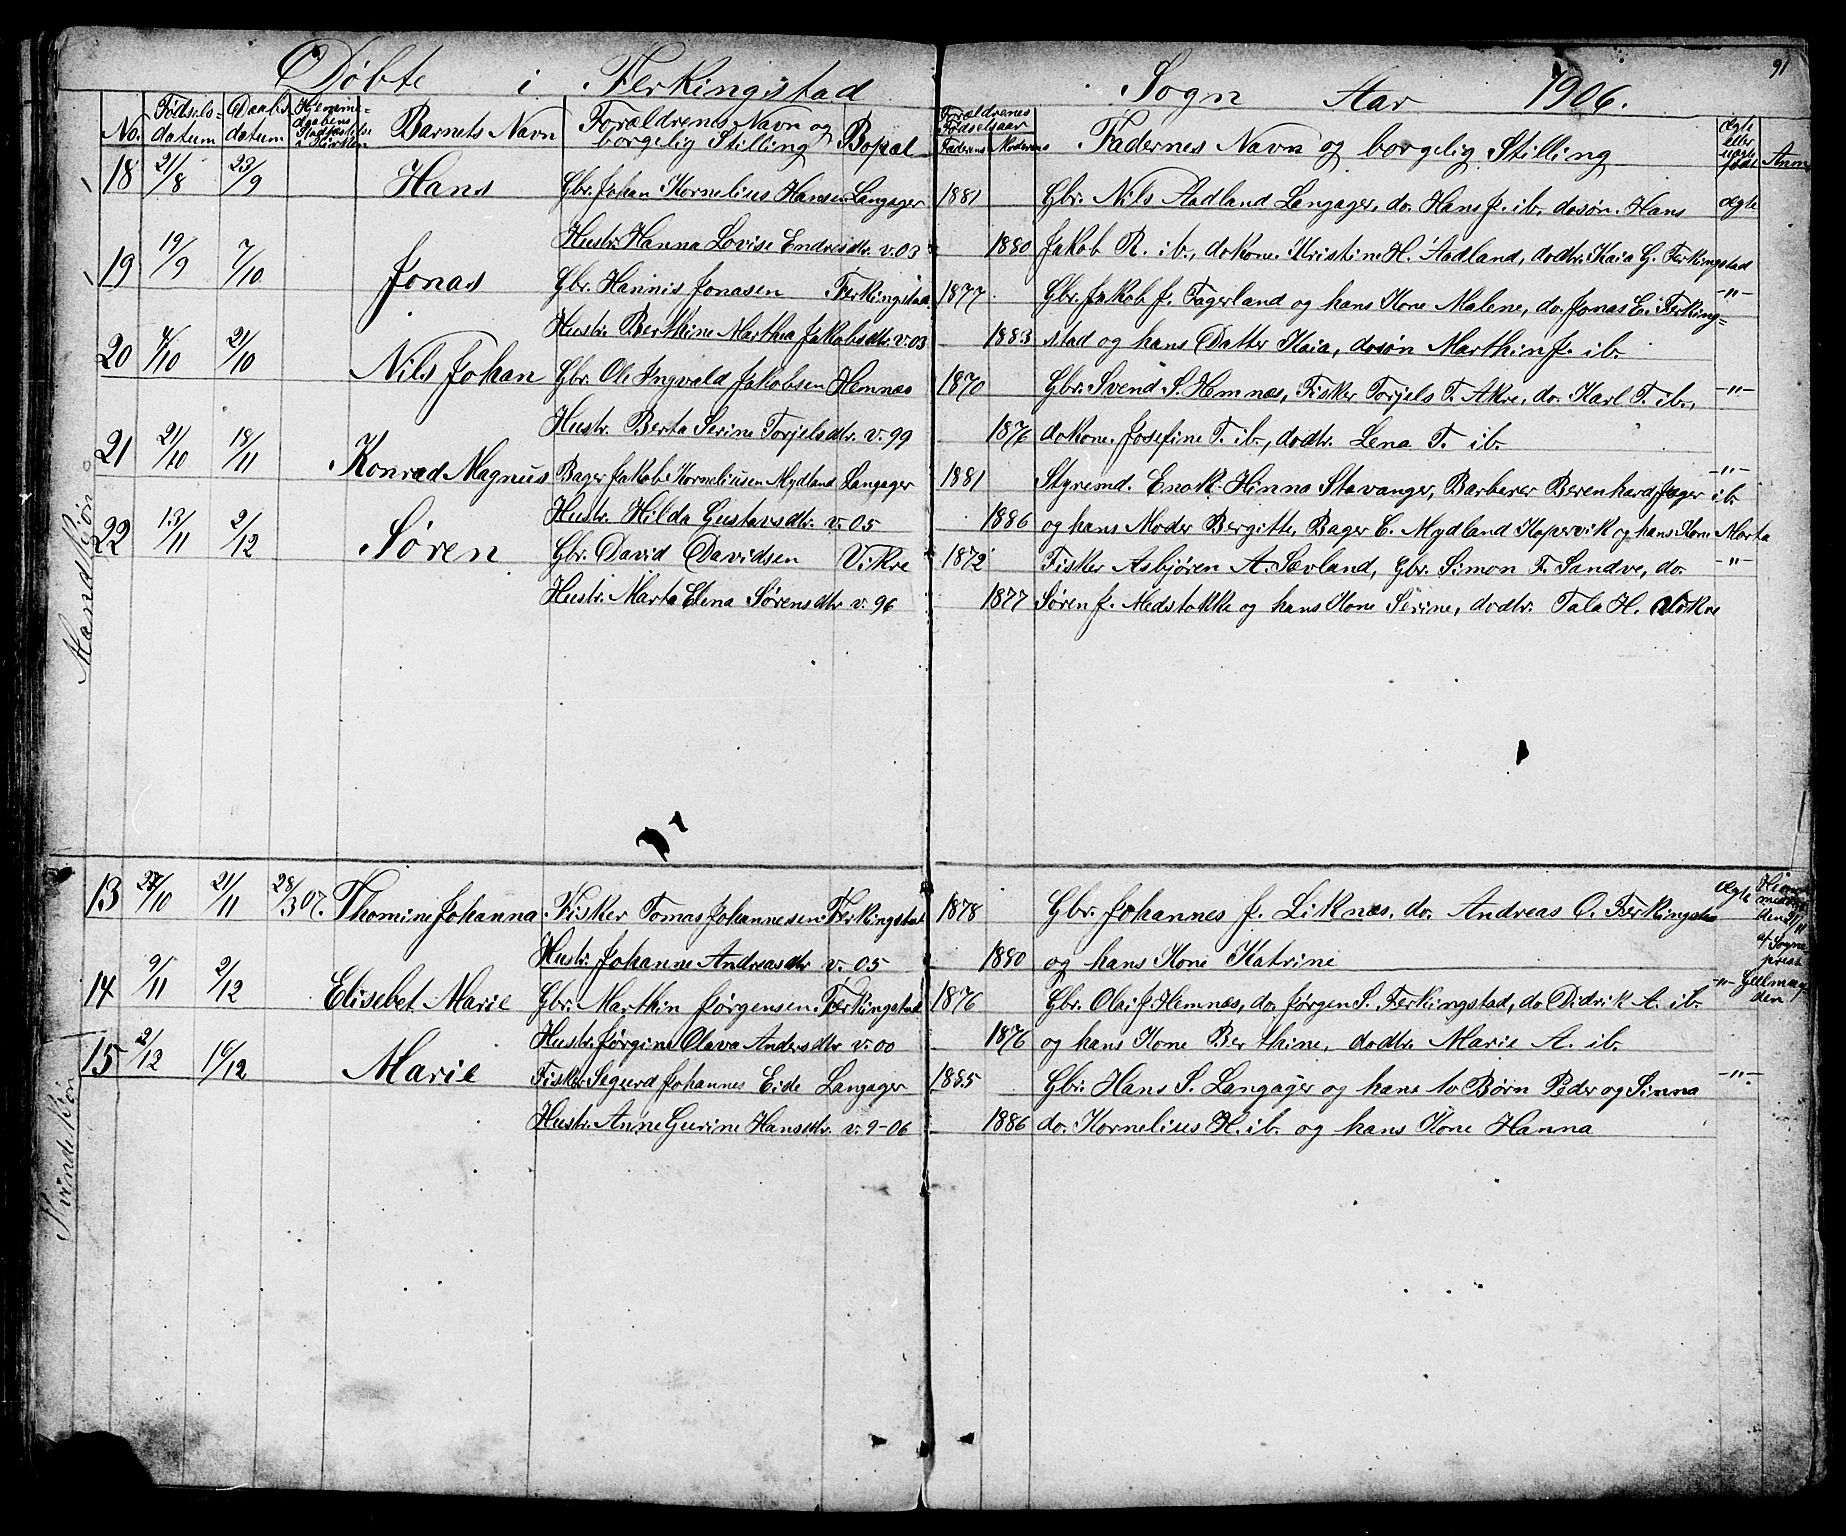 91
Døbte i Ferkingstad Sogn Aar 1906.
No. Fødsels= datum Daabs datum Hjemme= daabens Stadfæstelse i Kirken Barnets Navn Forældrenes Navn og borgelig Stilling Bopæl Forældrenes Fødselsaar Faderens Moderens Fadernes Navn og borgelig Stilling ægte eller uægte født Anm
Mandkjøn
18 21/8 23/9 Hans Gbr. Johan Kornelius Hansen Langager 1881 Gbr. Nils Aadland Langager, do. Hans J. ib., dosøn. Hans ægte
Hustr. Hanna Lovise Endresdtr. v. 03 1880 Jakob R. ib., dokone. Kristine H. Aadland, dodtr. Kaia G. Ferkingstad
19 19/9 7/10 Jonas Gbr. Hannis Jonasen Ferkingstad 1877 Gbr. Jakob J. Fagerland og hans Kone Malene, do. Jonas E. Ferking= -"-
Hustr. Berthine Marthea Jakobsdtr. v. 03 1883 stad og hans Datter Kaia, dosøn Marthin J. ib.
20 4/10 21/10 Nils Johan Gbr. Ole Ingvald Jakobsen Hemnæs 1870 Gbr. Svend S. Hemnæs, Fisker Torjels T. Akre, do. Karl T. ib., -"-
Hustr. Berta Serine Torjelsdtr. v. 99 1876 dokone. Josefine T. ib., dodtr. Lena T. ib.
21 21/10 18/11 Konrad Magnus Bager Jakob Korneliusen Mydland Langager 1881 Styremd. Enok Hinna Stavanger, Barberer Berenhard Jæger ib. -"-
Hustr. Hilda Gustavsdtr. v. 05 1886 og hans Moder Bergitte, Bager C. Mydland Kopervik og hans Kone Marta
22 13/11 2/12 Søren Gbr. David Davidsen Vikre 1872 Fisker Asbjøren A. Sævland, Gbr. Simon F. Sandve, do. -"-
Hustr. Marta Elena Sørensdtr v. 96 1877 Søren J. Medstokke og hans Kone Serine, dodtr. Tala H. Vikre
Kvindekjøn
13 27/10 21/11 28/3 07. Thomine Johanna Fisker Tomas Johannesen Ferkingstad 1878 Gbr. Johannes J. Liknæs, do. Andreas O. Ferkingstad ægte
Hustr. Johanne Andreasdtr v. 05 1880 og hans Kone Katrine
den 21/11 af Sogne prest
14 9/11 2/12 Elisebet Marie Gbr. Marthin Jørgensen Ferkingstad 1876 Gbr. Olai J. Hemnæs, do. Jørgen S. Ferkingstad, do Didrik A. ib. -"-
Hustr. Jørgine Olava Andersdtr v. 00 1876 og hans Kone Berthine, dodtr. Marie A. ib.
15 2/12 16/12 Marie Fisker Sigurd Johannes Eide Langager 1885 Gbr. Hans S. Langager og hans to Børn Peder og Sinna -"-
Hustr. Anne Gurine Hansdtr. v. 9-06 1886 do. Kornelius H. ib. og hans Kone Hanna